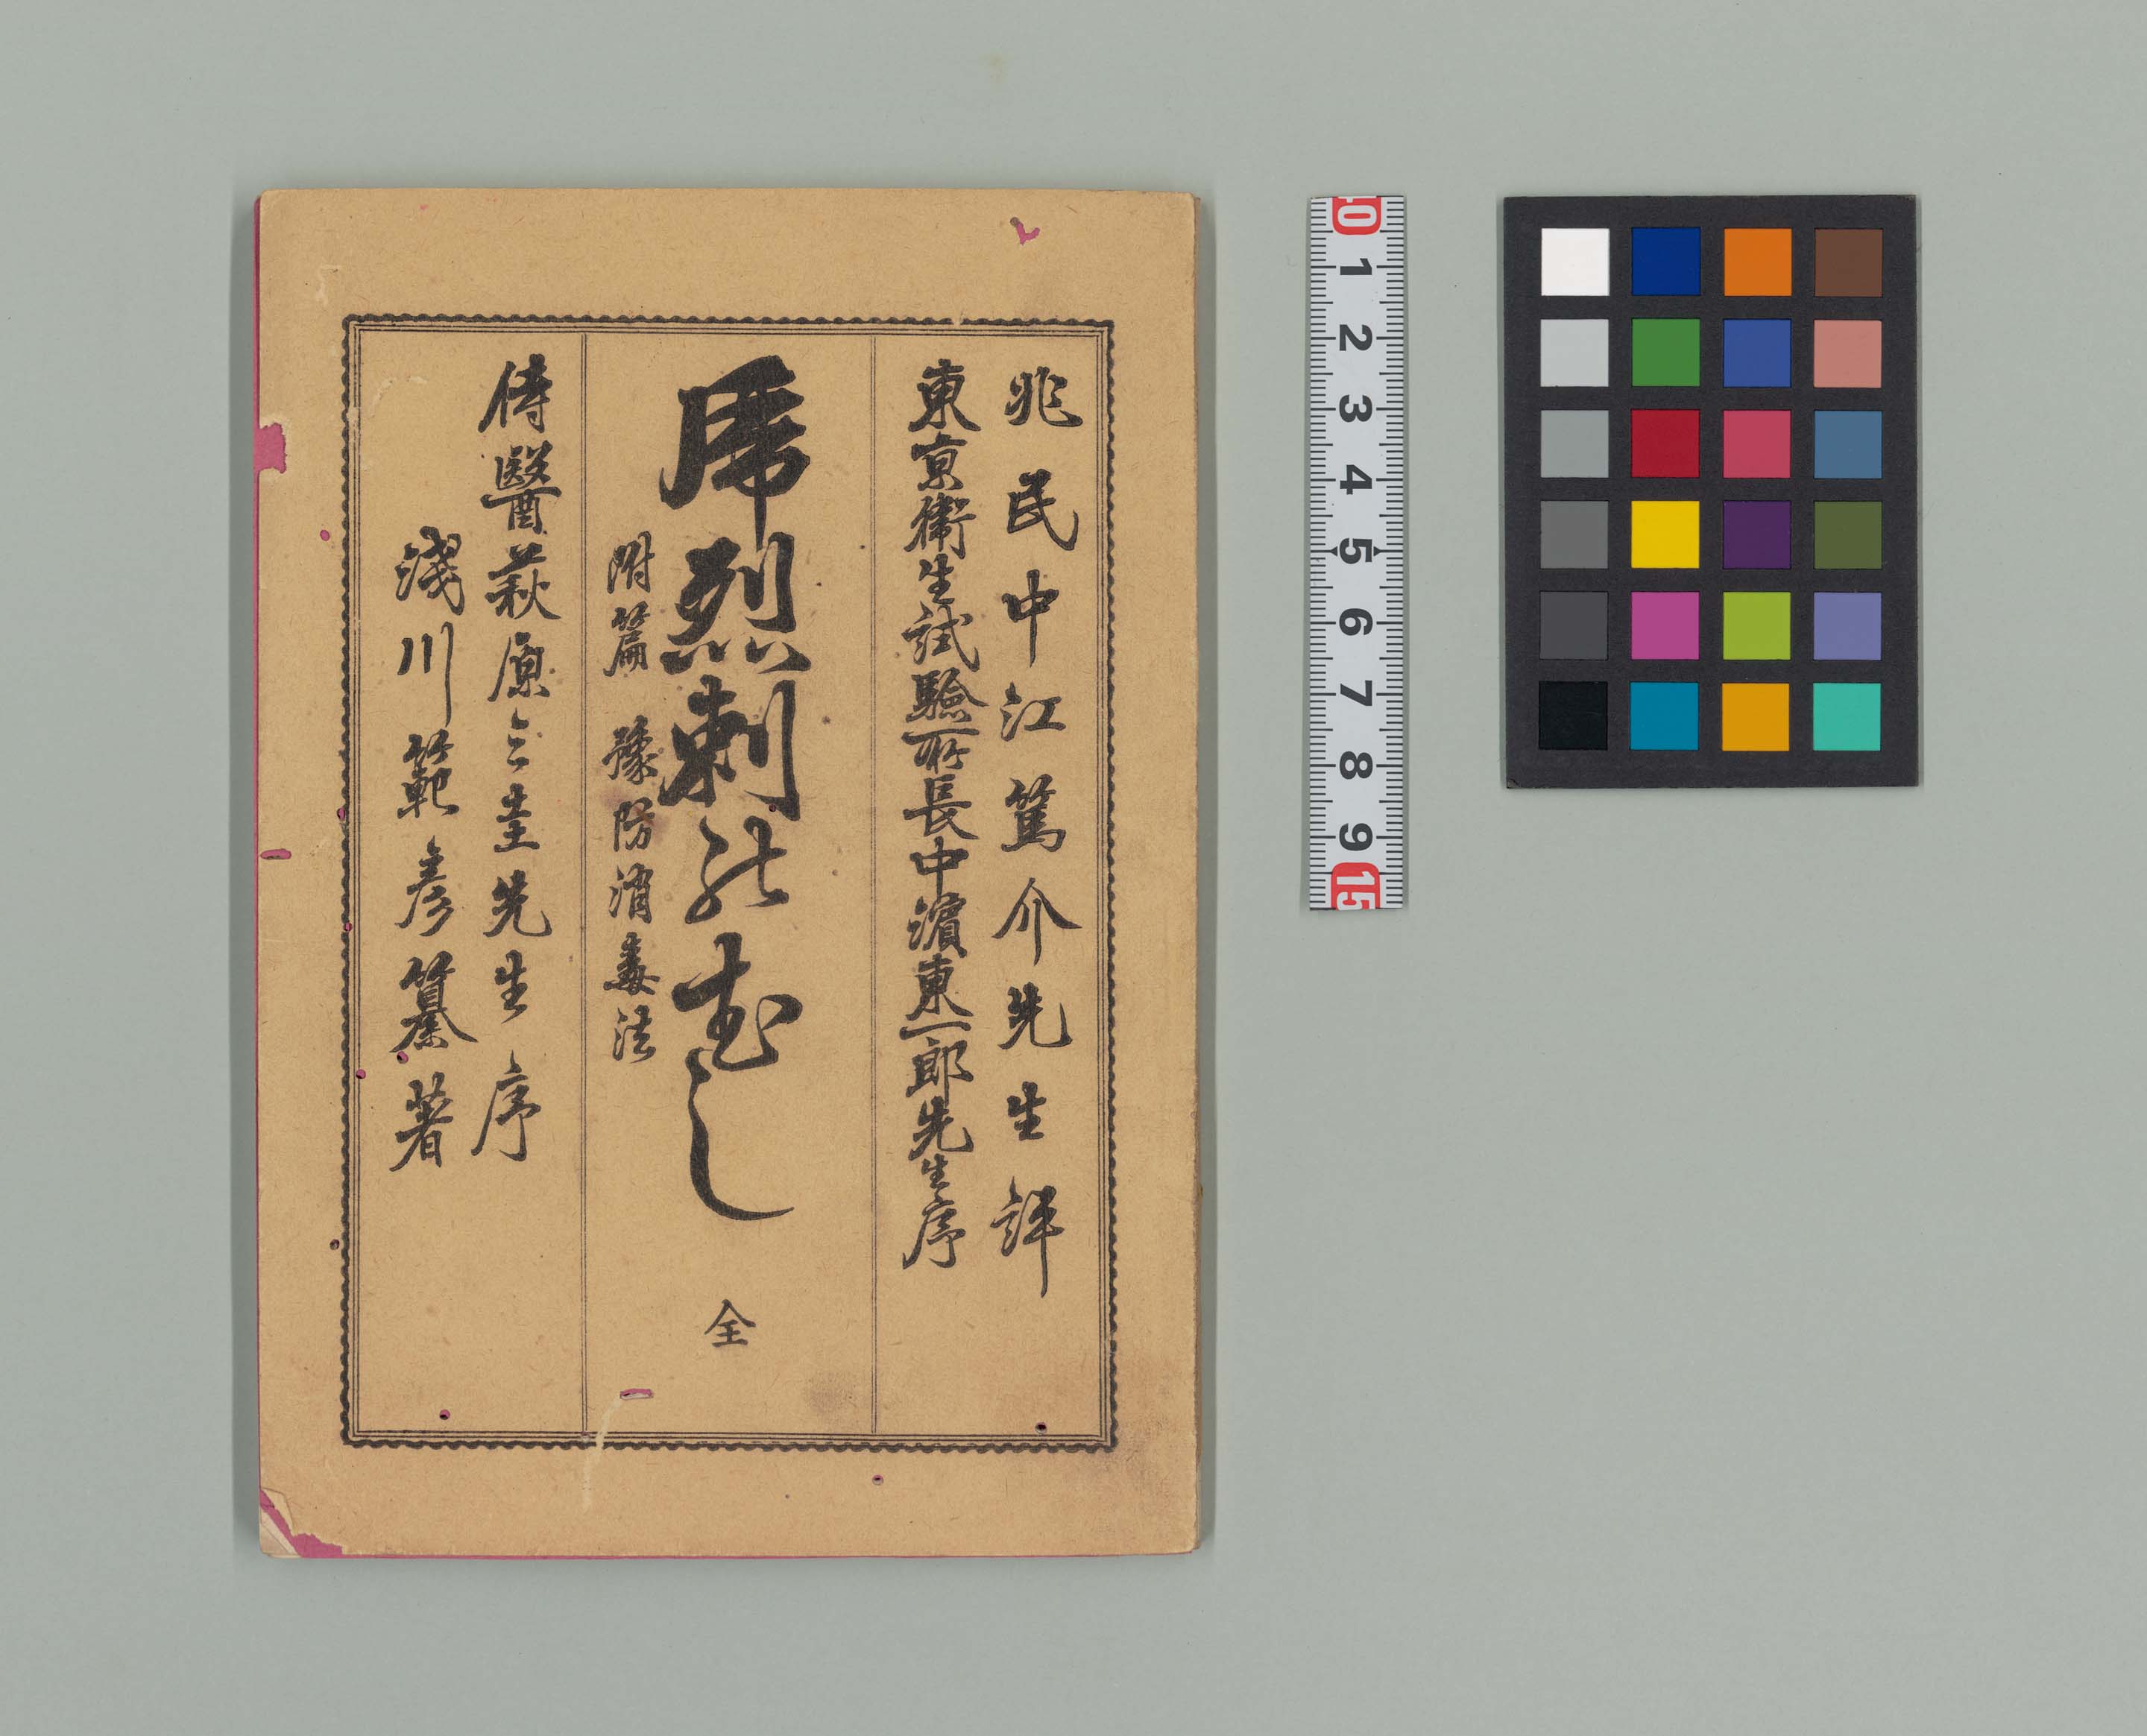 兆民中江篤介先生評
東京衞生試驗所長中濱東一郎先生序
虎烈剌
全
附篇 豫防消毒法
侍醫萩原三圭先生序
淺川範彥纂著
0 1 2 3 4 5 6 7 8 9 15